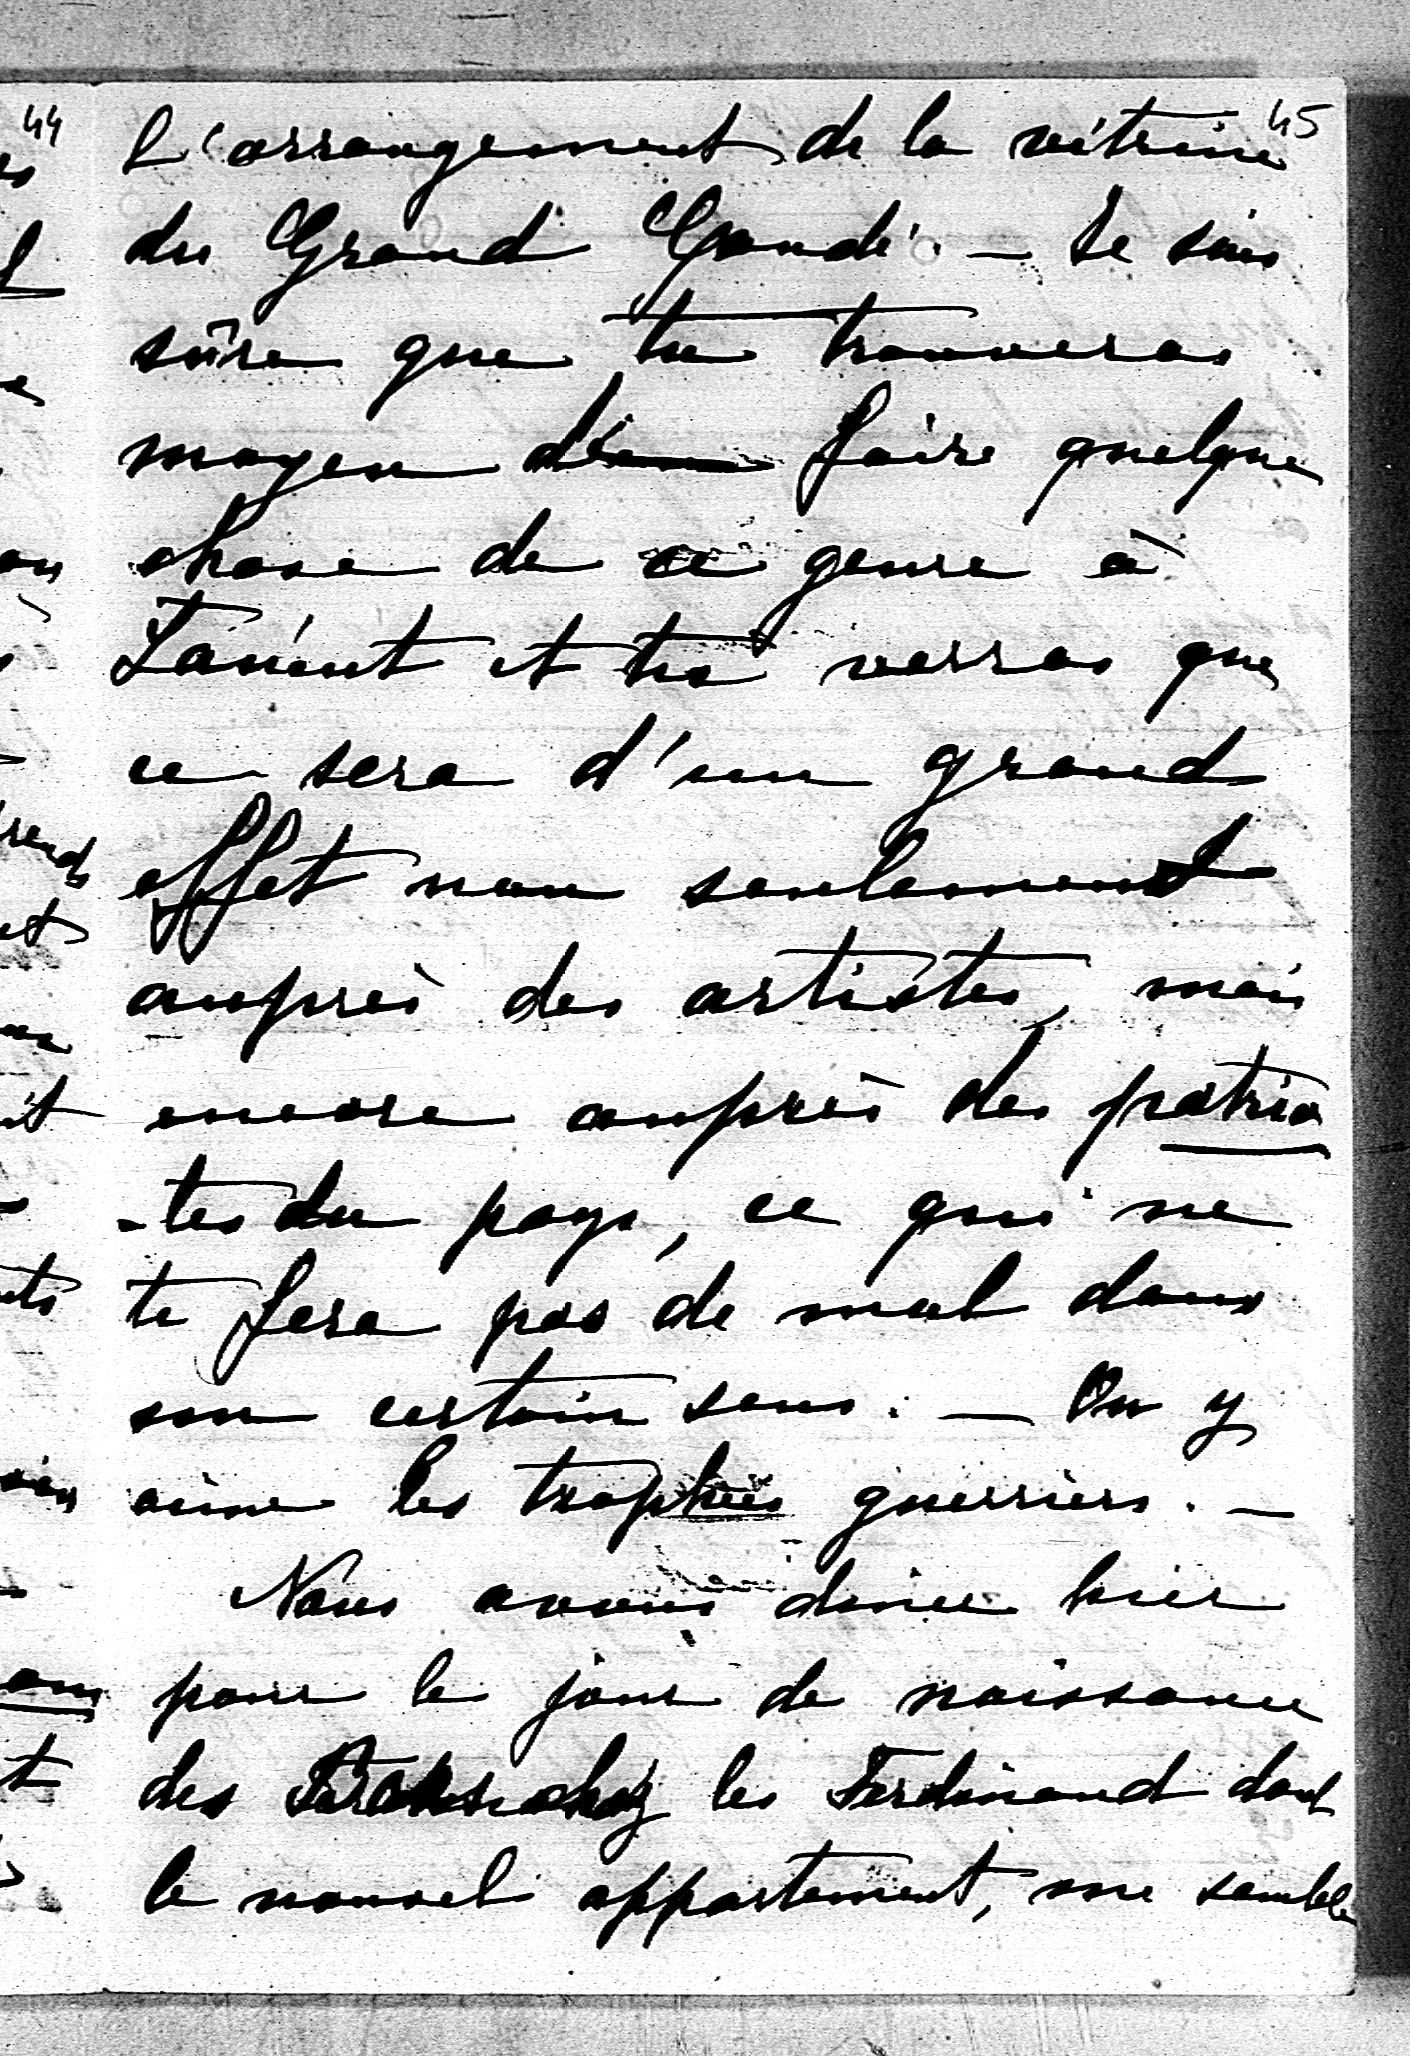 44
45
L'arrangement de la vitrine
du Grand Condé. — Je suis
sûre que tu trouveras
moyen d'en faire quelque
chose de ce genre à
et tu verras que
ce sera d'un grand
effet non seulement
auprès des artistes, mais
encore auprès des patrio
-tes du pays, ce qui ne
te fera pas de mal dans
son certain sens. — On y
aime les trophées guerriers. —
Nous avons diner hier
pour le jour de naissance
des chez les Ferdinand dont
le nouvel appartement, me semble